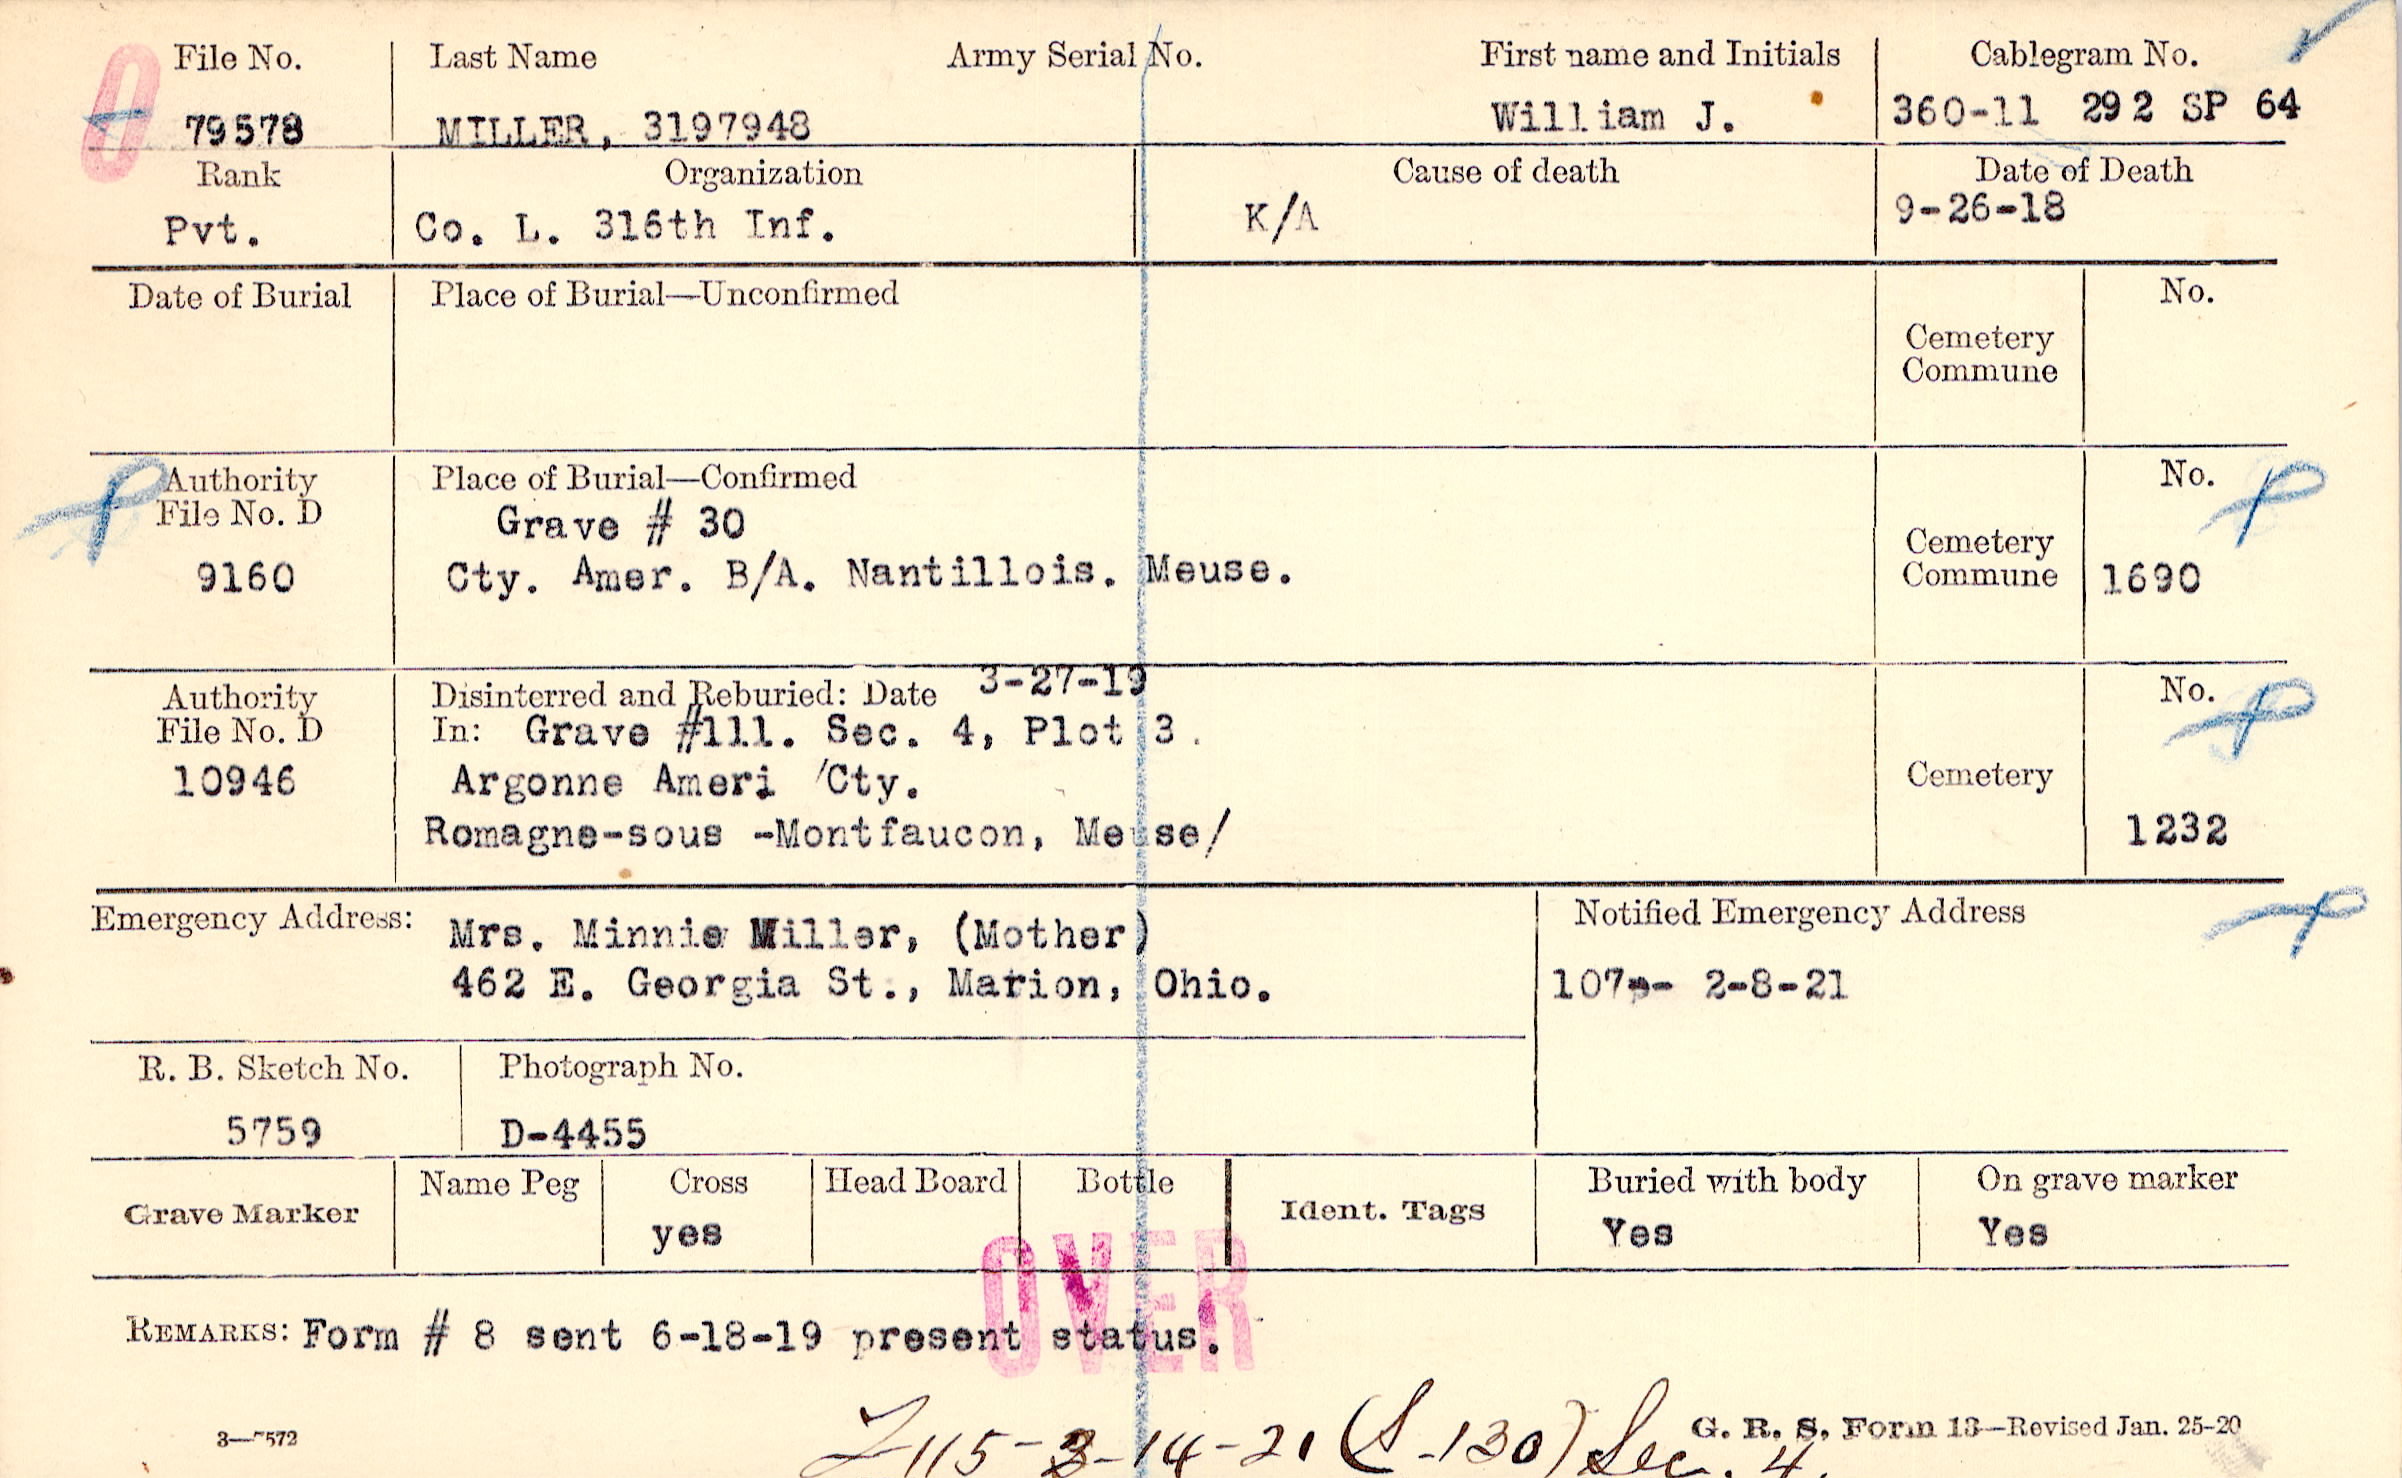 File No. Last Name Army Serial No. First name and Initials Cablegram No.
79578 MILLER, 3197948 William J. 360-11 292 SP 64
Rank Organization Cause of death Date of Death
Pvt. Co. L. 316th Inf. K/A 9-26-18
Date of Burial Place of Burial—Unconfirmed No.
Cemetery
Commune
Authority Place of Burial—Confirmed No.
File No. D Grave # 30
Cemetery
9160 Cty. Amer. B/A. Nantillois. Meuse. Commune 1690
Authority Disinterred and Reburied: Date 3-27-19 No.
File No. D In: Grave #111. Sec. 4, Plot 3.
10946 Argonne Ameri /Cty. Cemetery
Romagne-sous -Montfaucon, Meuse/ 1232
Emergency Address: Mrs. Minnie Miller, (Mother) Notified Emergency Address
462 E. Georgia St., Marion, Ohio. 2-8-21
R. B. Sketch No. Photograph No.
5759 D-4455
Grave Marker Name Peg Cross Head Board Bottle Ident. Tags Buried with body On grave marker
yes Yes Yes
OVER
REMARKS: Form # 8 sent 6-18-19 present status.
115-3-14-21 (S-130) Sec. 4.
3—7572 G. R. S. Form 13—Revised Jan. 25-20